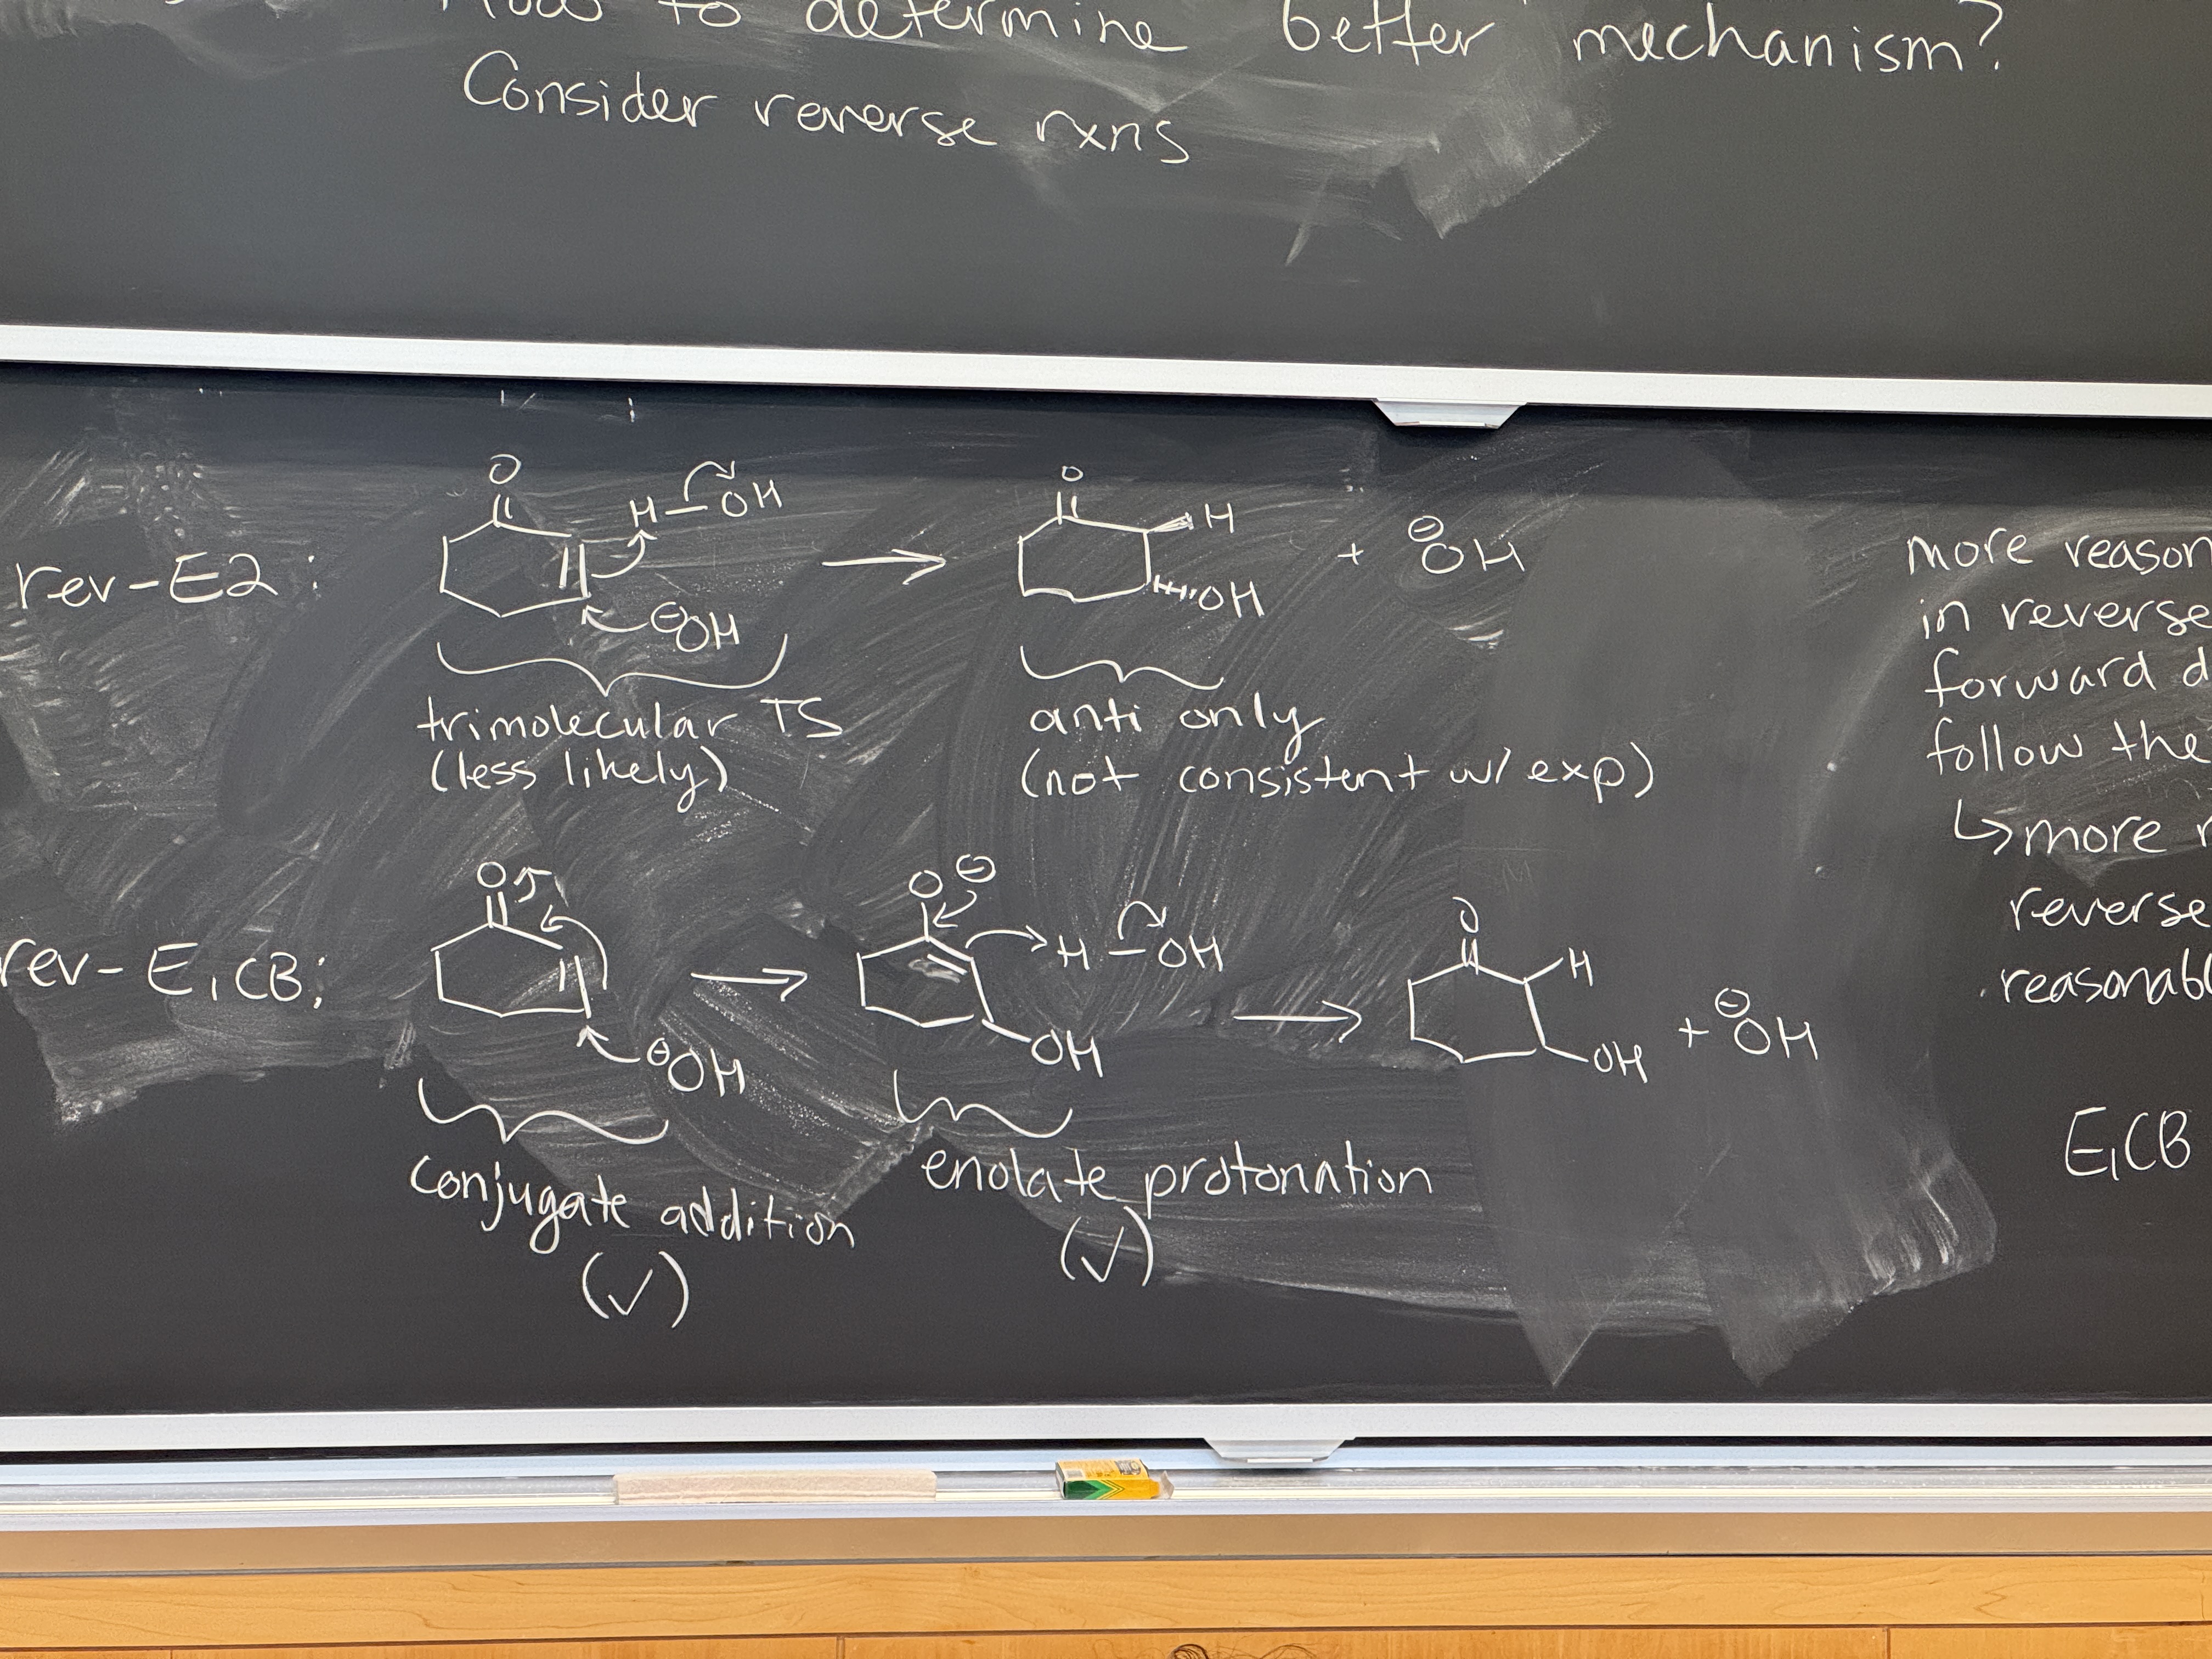 How to determine better mechanism?
Consider reverse rxns
rev-E2:
O
H-OH
⊖OH
trimolecular TS
(less likely)
O
H
OH
+ ⊖OH
anti only
(not consistent w/ exp)
rev-E1CB:
O
⊖OH
conjugate addition
(✓)
O⊖
H-OH
OH
enolate protonation
(✓)
O
H
OH
+ ⊖OH
more reason
in reverse
forward d
follow the
↳ more r
reverse
reasonabl
E1CB